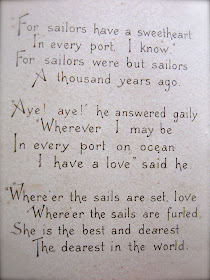 "For sailors have a sweetheart
In every port, I know."
For sailors were but sailors
A thousand years ago.
"Aye! aye!" he answered gaily
"Wherever I may be
In every port on ocean
I have a love" said he.
"Where'er the sails are set, love
Where'er the sails are furled,
She is the best and dearest
The dearest in the world.